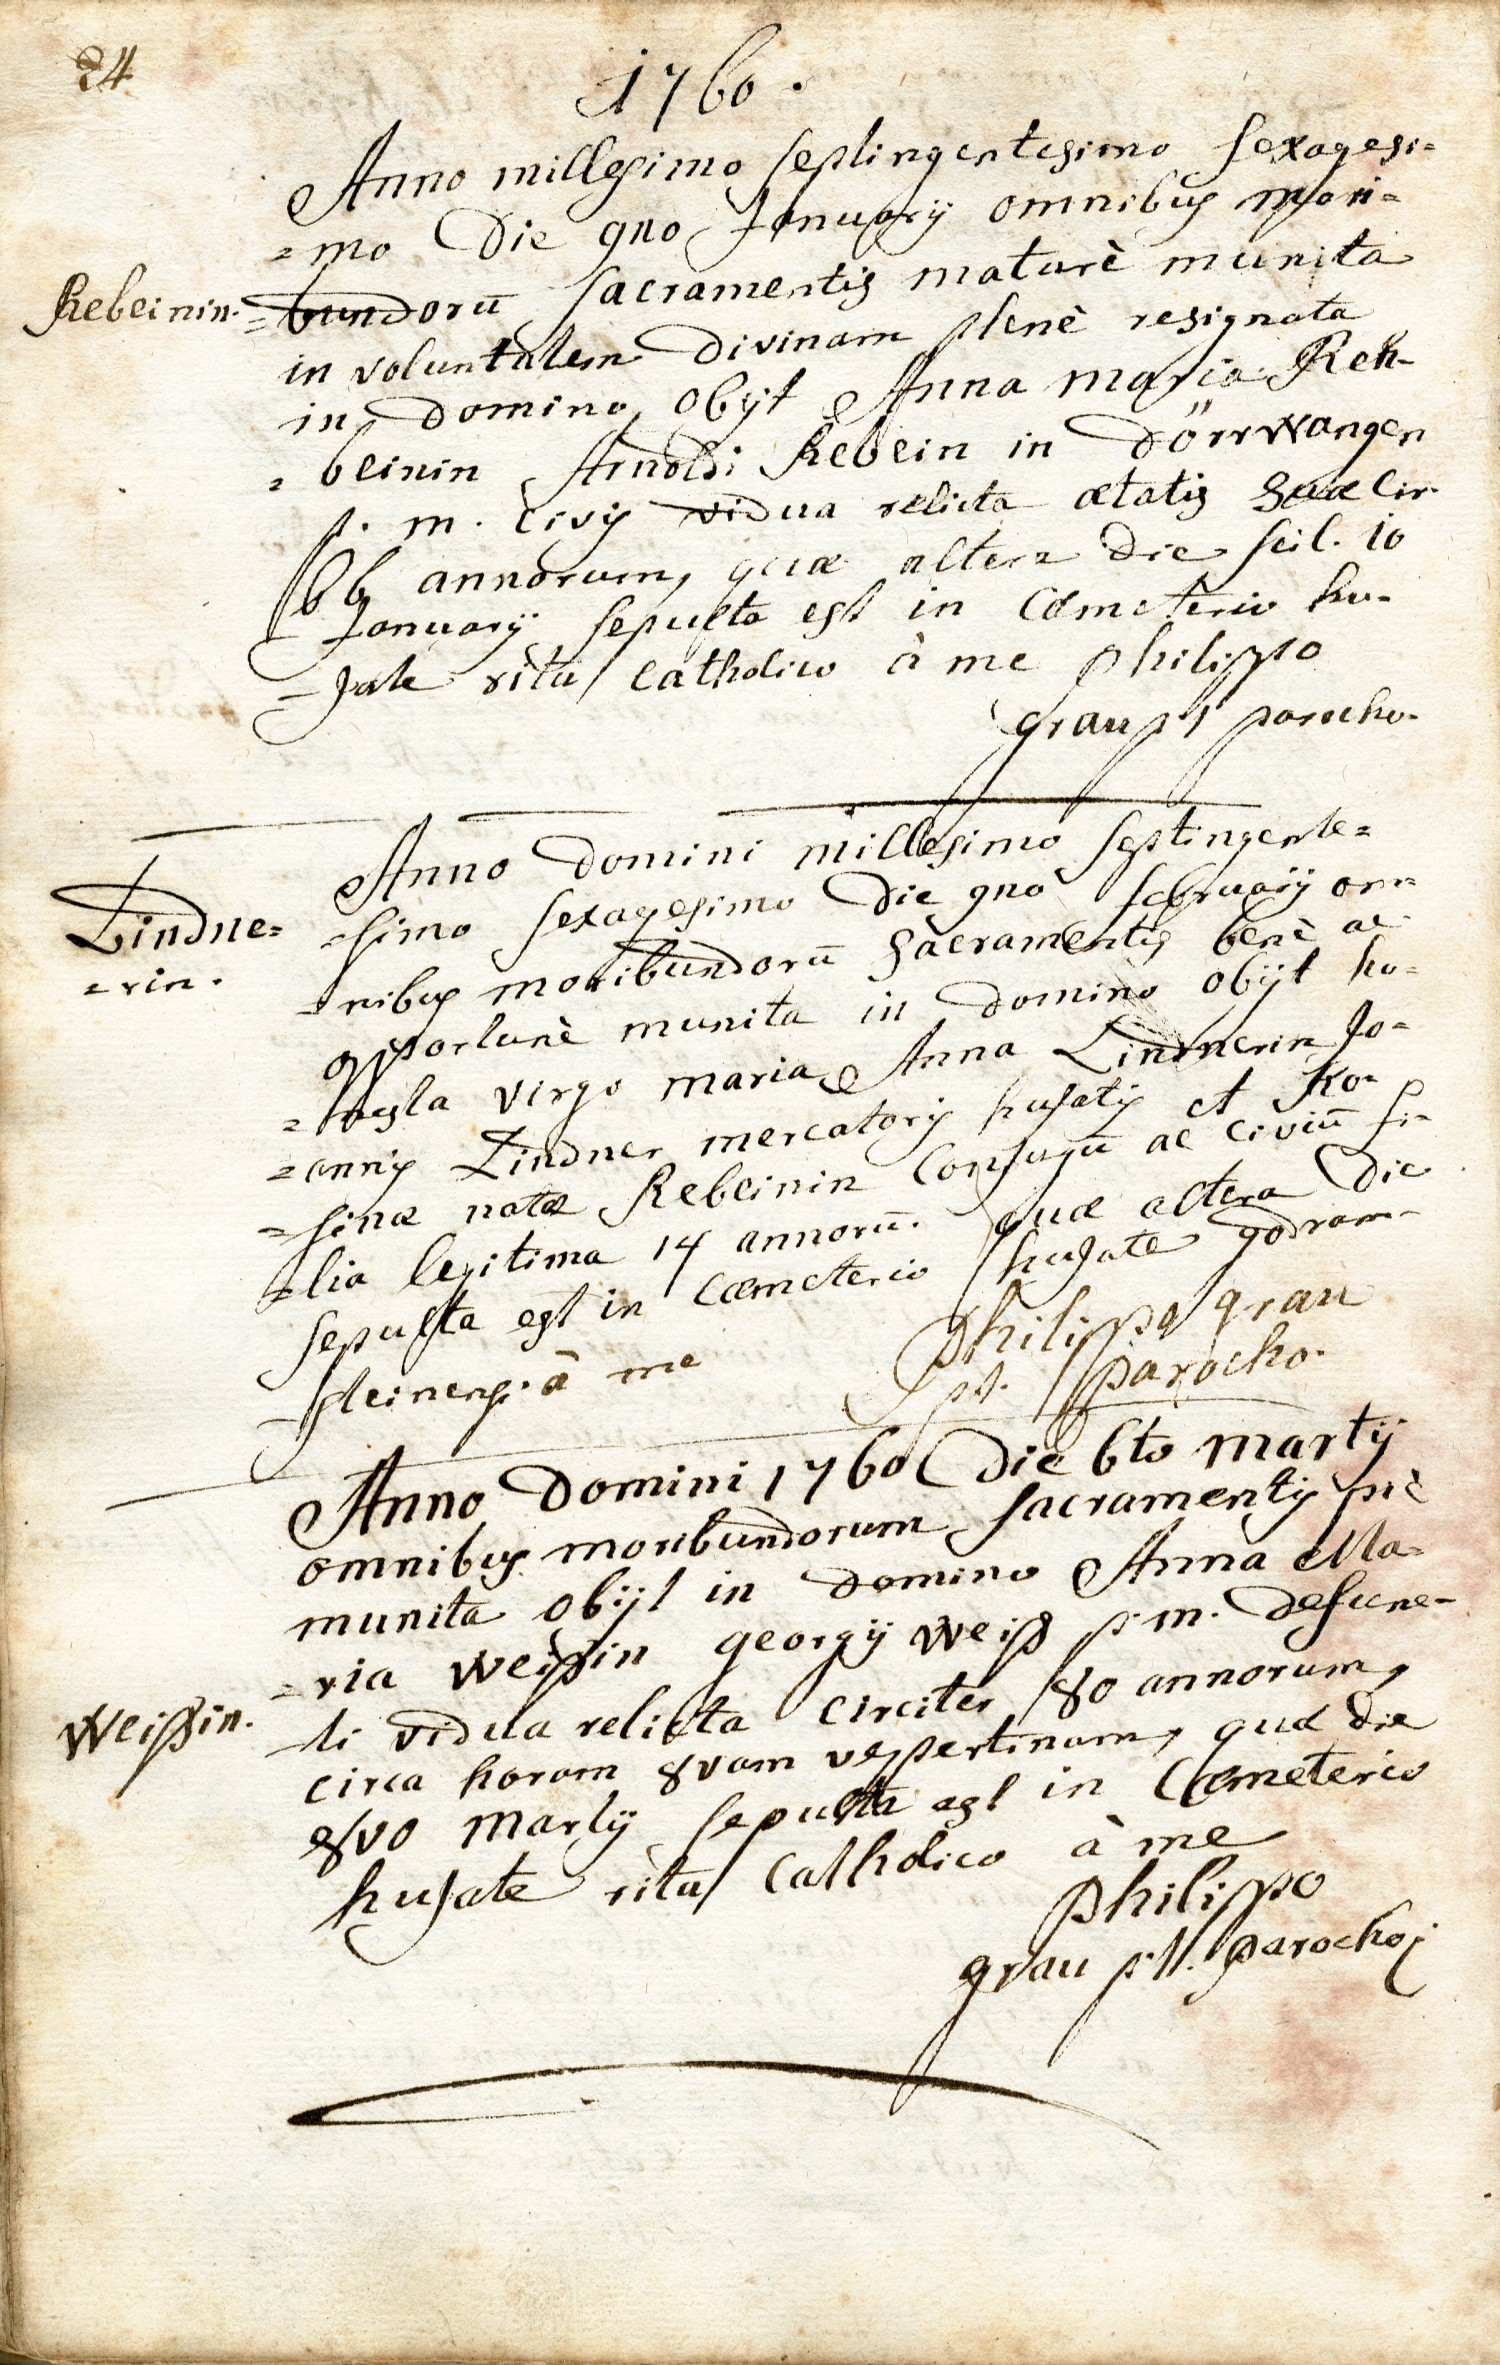 24
1760.
Anno millesimo septingentesimo sexagesi=
=mo Die 9no January omnibus mori=
Rebeinin. =bundorū sacramentis maturè munita
in voluntatem Divinam plenè resignata
in domino obijt Anna Maria Reh-
=beinin Arnoldi Rebein in Dörrwangen
p. m. civis vidua relicta ætatis suæ cir.
66 annorum, quæ altera die scil. 10
January sepulta est in Cæmeterio hu-
=jate ritu catholico à me Philippo
grau p t parocho.
Anno Domini millesimo septingente=
Lindne= =simo sexagesimo Die 9no february om=
=rin. =nibus moribundorū Sacramentis benè ac
opportunè munita in Domino obijt ho=
=nesta virgo maria Anna Lindnerin Jo=
=annis Lindner mercatoris hujatis et Ro-
=sinæ natæ Rebeinin Conjugū ac civiū fi=
=lia legitima 14 annorū. quæ altera Die
sepulta est in Cæmeterio hujate godram-
steinensi à me Philippo grau
pt. parocho.
Anno Domini 1760 Die 6to Martij
omnibus moribundorum sacramentis piè
munita obijt in domino Anna Ma-
=ria Weißin georgij Weiß p. m. defunc-
Weißin. ti vidua relicta circiter 80 annorum,
circa horam 8vam vespertinam, quæ die
8vo Martij sepulta est in Cæmeterio
hujate ritu Catholico à me
Philippo
grau p. t. parocho